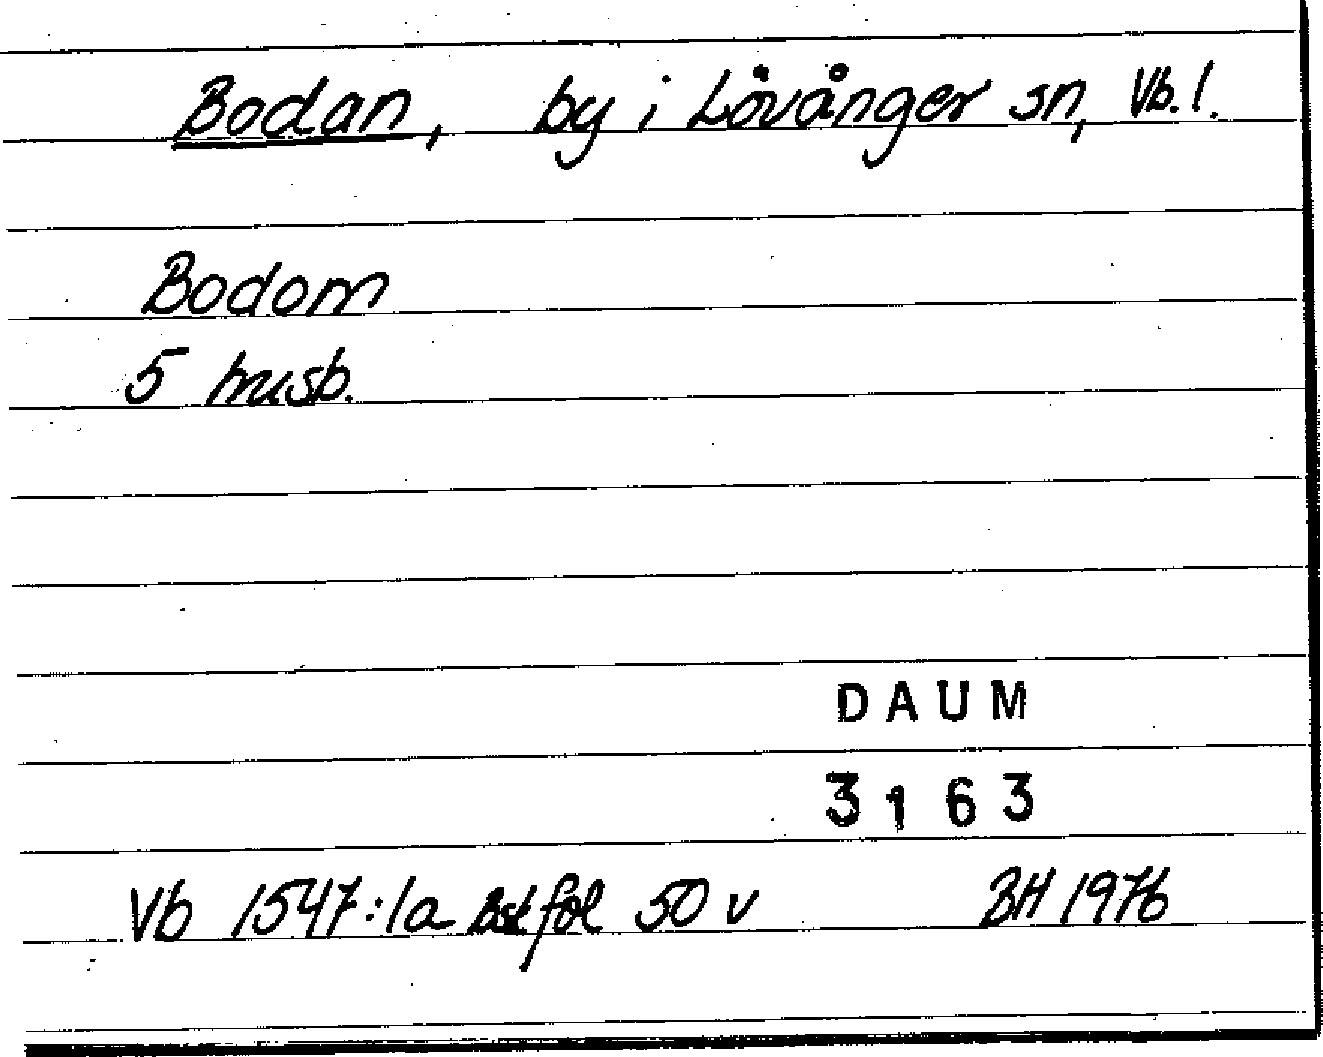 Bodan, by i Lövånger sn, Vb. l.
Bodom
5 husb.
DAUM
3163
Vb 1547:1a Bst fol 50 v BH 1976